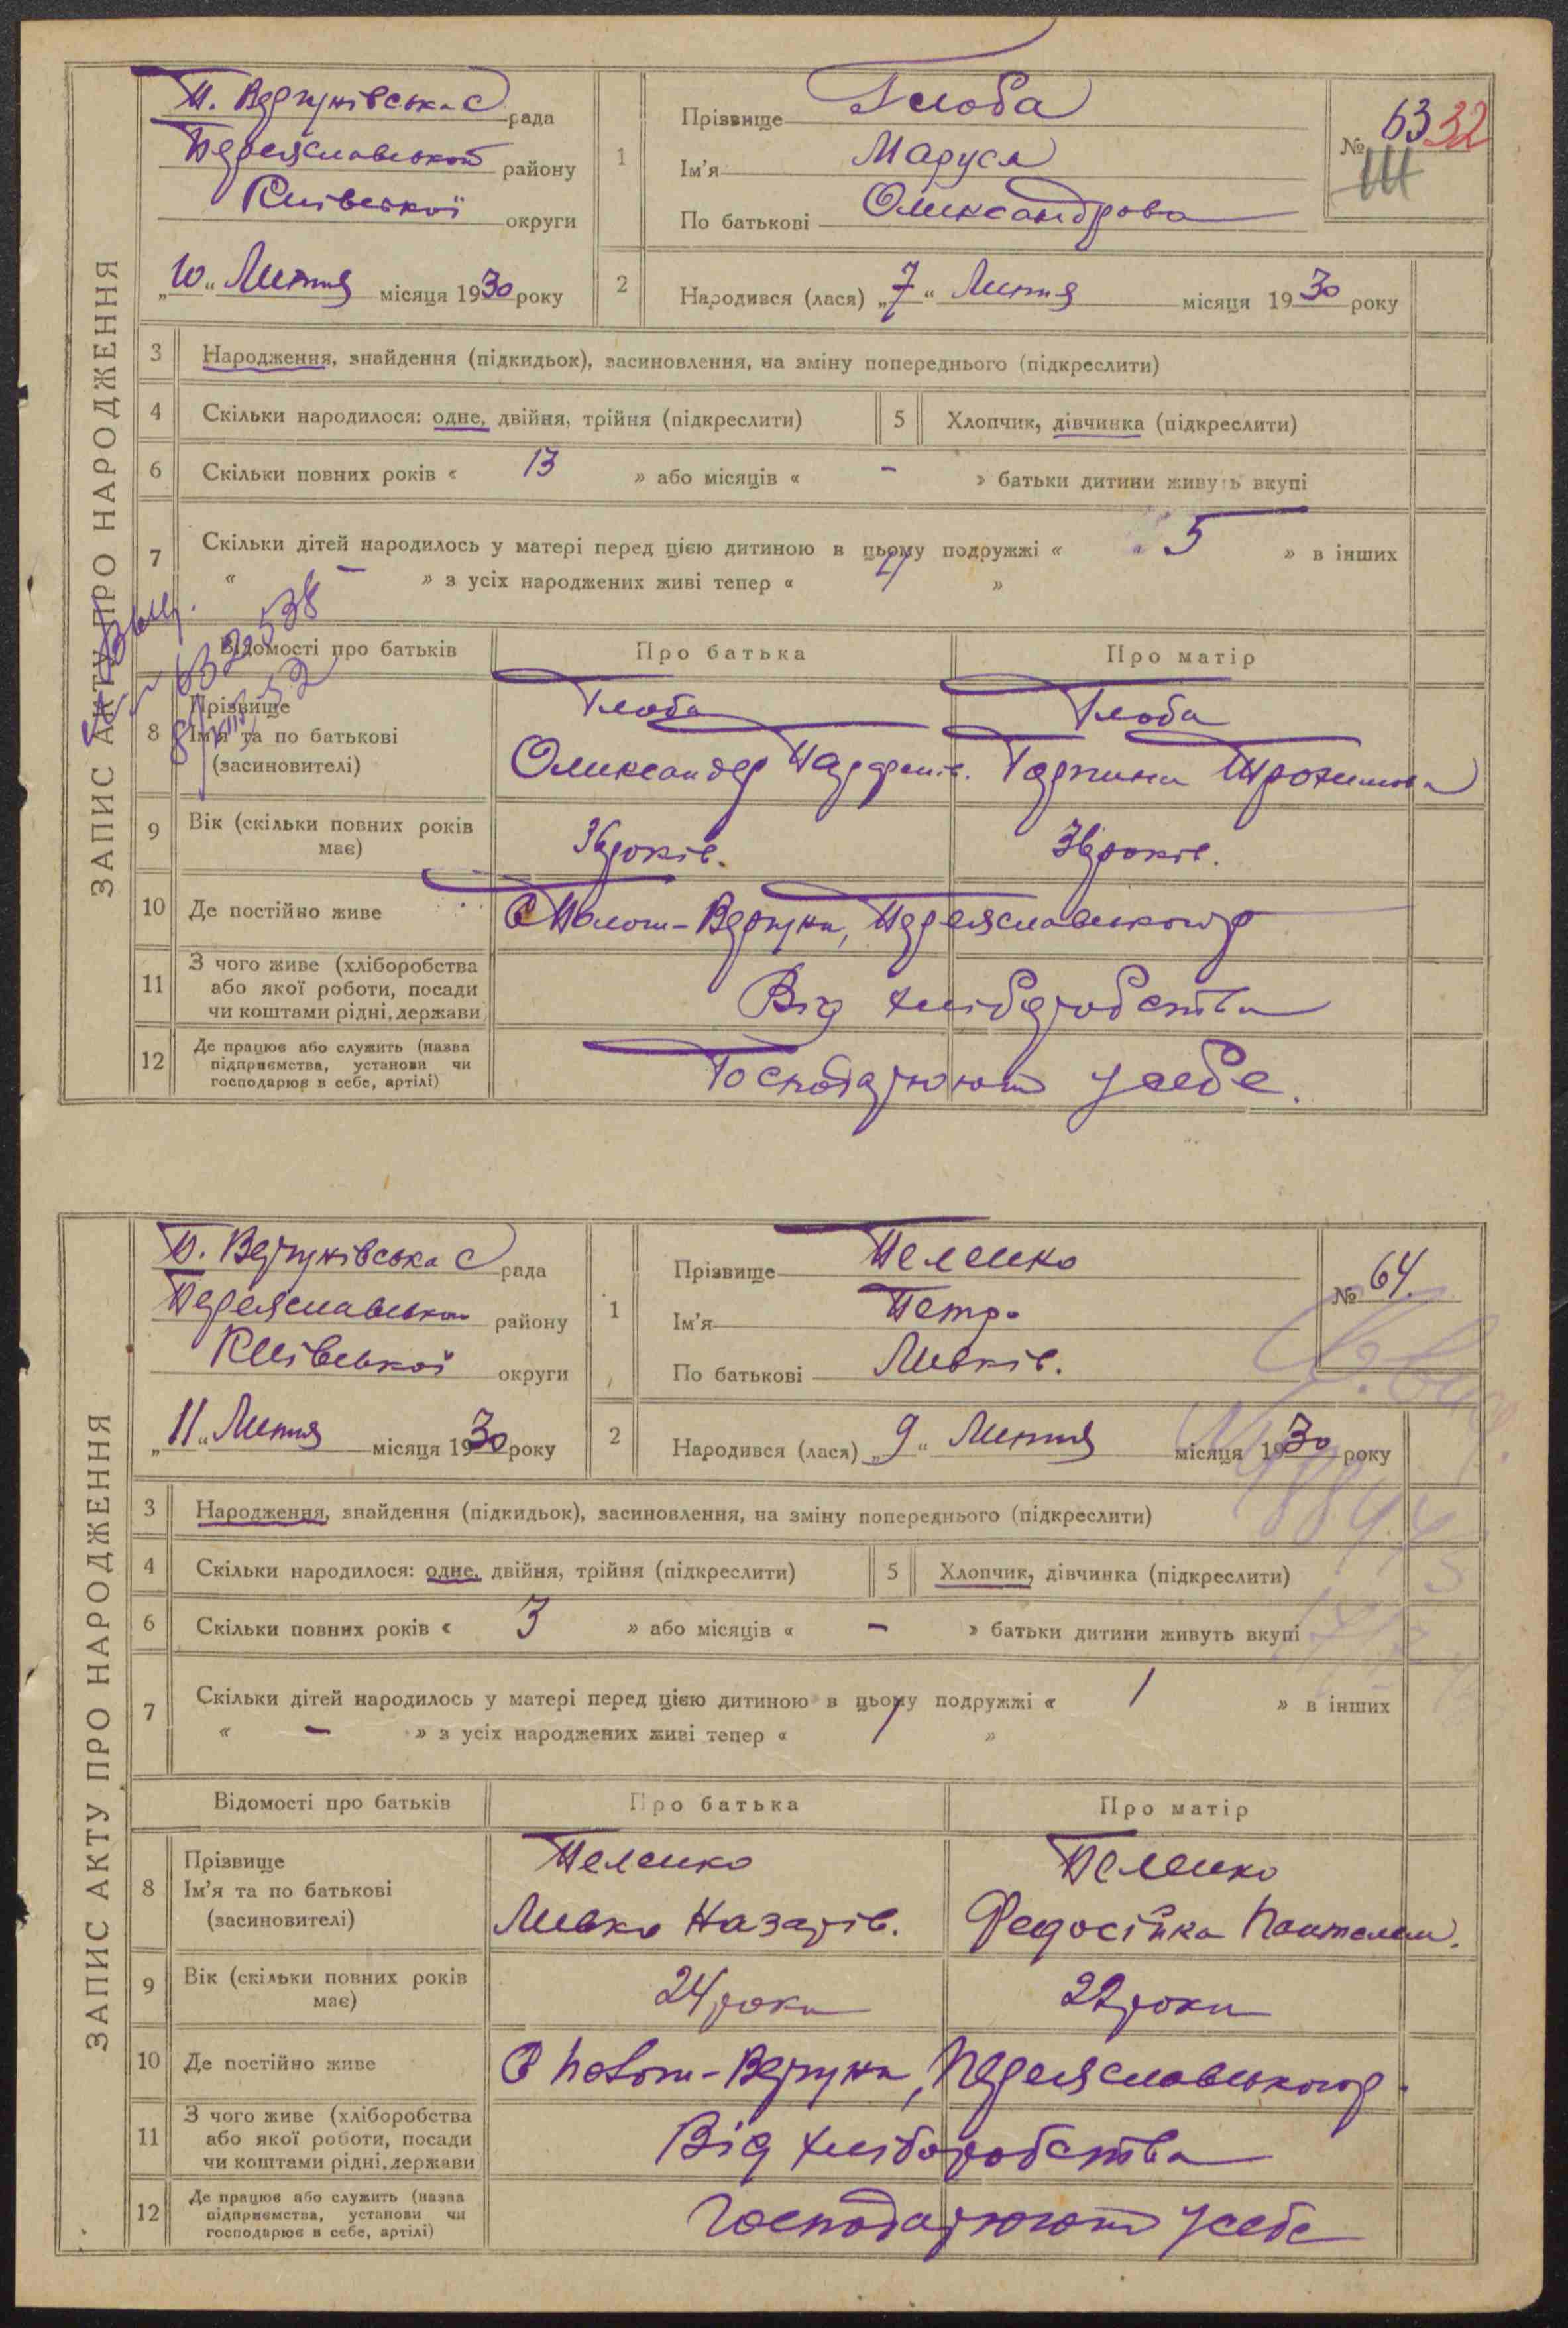 ЗАПИС АКТУ ПРО НАРОДЖЕННЯ
П. Вергунівська С рада
Переяславської району
Київської округи
„10“ Липня місяця 1930 року
1
Прізвище Глоба
Ім'я Маруся
По батькові Олександрова
№ 63 32
Ш
2
Народився (лася) „7“ Липня місяця 1930 року
3 Народження, знайдення (підкидьок), засиновлення, на зміну попереднього (підкреслити)
4 Скільки народилося: одне, двійня, трійня (підкреслити) 5 Хлопчик, дівчинка (підкреслити)
6 Скільки повних років « 13 » або місяців « - » батьки дитини живуть вкупі
7 Скільки дітей народилось у матері перед цією дитиною в цьому подружжі « 5 » в інших
« — » з усіх народжених живі тепер « 4 »
Відомості про батьків Про батька Про матір
8 Прізвище Глоба Глоба
Ім'я та по батькові Олександер Парфенів. Горпина Трохимова
(засиновителі)
9 Вік (скільки повних років має) 36 років. 36 років.
10 Де постійно живе С Полог-Вергуни, Переяславського р
11 З чого живе (хліборобства або якої роботи, посади чи коштами рідні, держави Від хліборобства
12 Де працює або служить (назва підприємства, установи чи господарює в себе, артілі) Господарюют у себе.
ЗАПИС АКТУ ПРО НАРОДЖЕННЯ
П. Вергунівська С рада
Переяславської району
Київської округи
„11“ Липня місяця 1930 року
1
Прізвище Пеленко
Ім'я Петро
По батькові Левків.
№ 64.
2
Народився (лася) „9“ Липня місяця 1930 року
3 Народження, знайдення (підкидьок), засиновлення, на зміну попереднього (підкреслити)
4 Скільки народилося: одне, двійня, трійня (підкреслити) 5 Хлопчик, дівчинка (підкреслити)
6 Скільки повних років « 3 » або місяців « - » батьки дитини живуть вкупі
7 Скільки дітей народилось у матері перед цією дитиною в цьому подружжі « 1 » в інших
« — » з усіх народжених живі тепер « 1 »
Відомості про батьків Про батька Про матір
8 Прізвище Пеленко Пеленко
Ім'я та по батькові Левко Назарів. Федосійка Пантелем.
(засиновителі)
9 Вік (скільки повних років має) 24 роки 22 роки
10 Де постійно живе С Полог-Вергуни, Переяславського р.
11 З чого живе (хліборобства або якої роботи, посади чи коштами рідні, держави Від хліборобства
12 Де працює або служить (назва підприємства, установи чи господарює в себе, артілі) Господарюют у себе